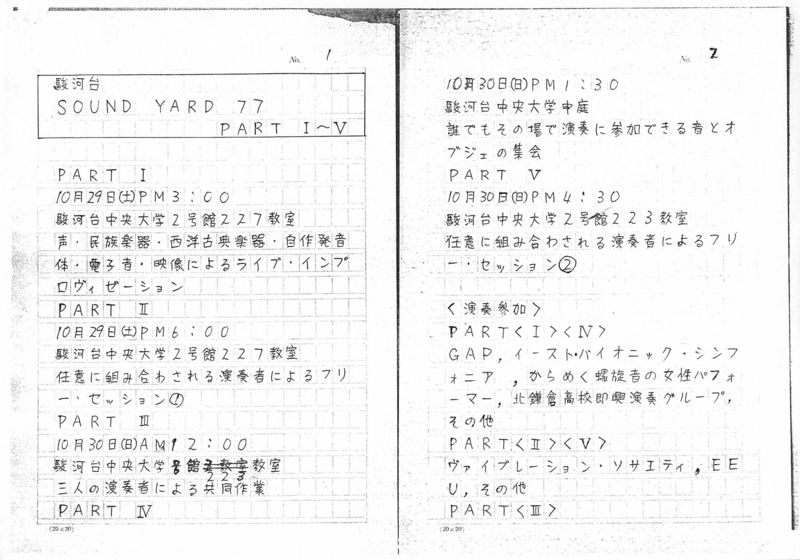 No. 1
駿河台
SOUND YARD 77
PART I～V
PART I
10月29日(土)PM3:00
駿河台中央大学2号館227教室
声・民族楽器・西洋古典楽器・自作発音
体・電子音・映像によるライブ・インプ
ロヴィゼーション
PART II
10月29日(土)PM6:00
駿河台中央大学2号館227教室
任意に組み合わされる演奏者によるフリ
ー・セッション①
PART III
10月30日(日)AM12:00
駿河台中央大学2号館223教室
三人の演奏者による共同作業
PART IV
(20×20)
No. 2
10月30日(日)PM1:30
駿河台中央大学中庭
誰でもその場で演奏に参加できる音とオ
ブジェの集会
PART V
10月30日(日)PM4:30
駿河台中央大学2号館223教室
任意に組み合わされる演奏者によるフリ
ー・セッション②
<演奏参加>
PART<I><IV>
GAP,イースト・バイオニック・シンフ
ォニア,からめく螺旋音の女性パフォ
ーマー,北鎌倉高校即興演奏グループ,
その他
PART<II><V>
ヴァイブレーション・ソサエティ,EE
U,その他
PART<III>
(20×20)